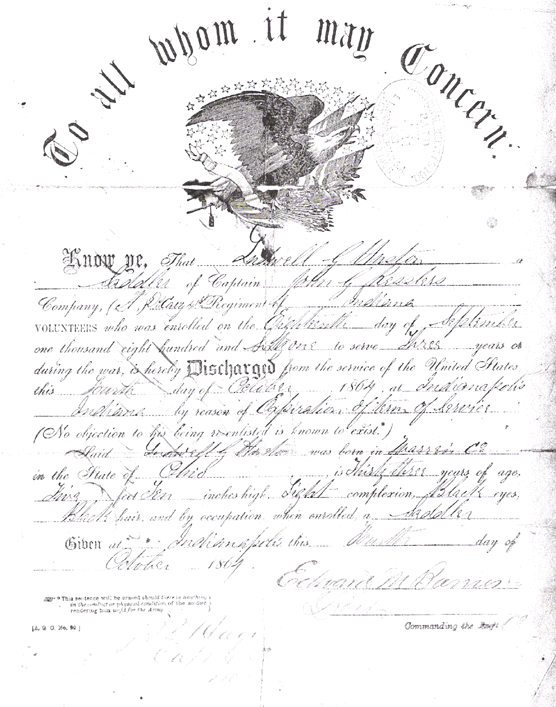 To all whom it may Concern:
Know ye, That G a
Saddler of Captain John G Kesslers
Company, (A,) Regiment of Indiana
VOLUNTEERS who was enrolled on the Eighteenth day of September
one thousand eight hundred and Sixty one to serve Three years or
during the war, is hereby Discharged from the service of the United States
this Fourth day of October 1864, at Indianapolis
Indiana by reason of Expiration of term of Service
(No objection to his being re-enlisted is known to exist.*)
Said G was born in Warren Co
in the State of Ohio is thirty three years of age,
Five feet Ten inches high, Light complexion, Black eyes,
Black hair, and by occupation, when enrolled, a Saddler
Given at Indianapolis this Fourth day of
October 1864
Edward M
*This sentence will be erased should there be anything
in the conduct or physical condition of the soldier
rendering him unfit for the Army.
[A. G. O. No. 99.]
Commanding the